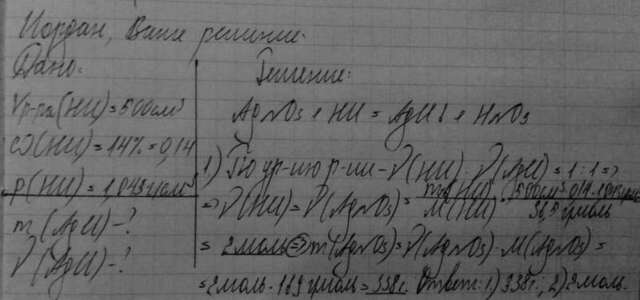 Иордан, Ваше решение.
Дано:
Vр-ра(HCl)=500см³
ω(HCl)=14%=0,14
ρ(HCl)=1,043г/см³
m(AgCl)-?
ν(AgCl)-?
Решение:
AgNO3+HCl=AgCl↓+HNO3
1) По ур-ию р-ии-ν(HCl):ν(AgCl)=1:1=>
=>ν(HCl)=ν(AgNO3)= M(HCl) 36,5г/моль
=2моль=>m(AgNO3)=ν(AgNO3)·M(AgNO3)=
=2моль·169г/моль=338г. Ответ: 1) 338г.; 2) 2моль.